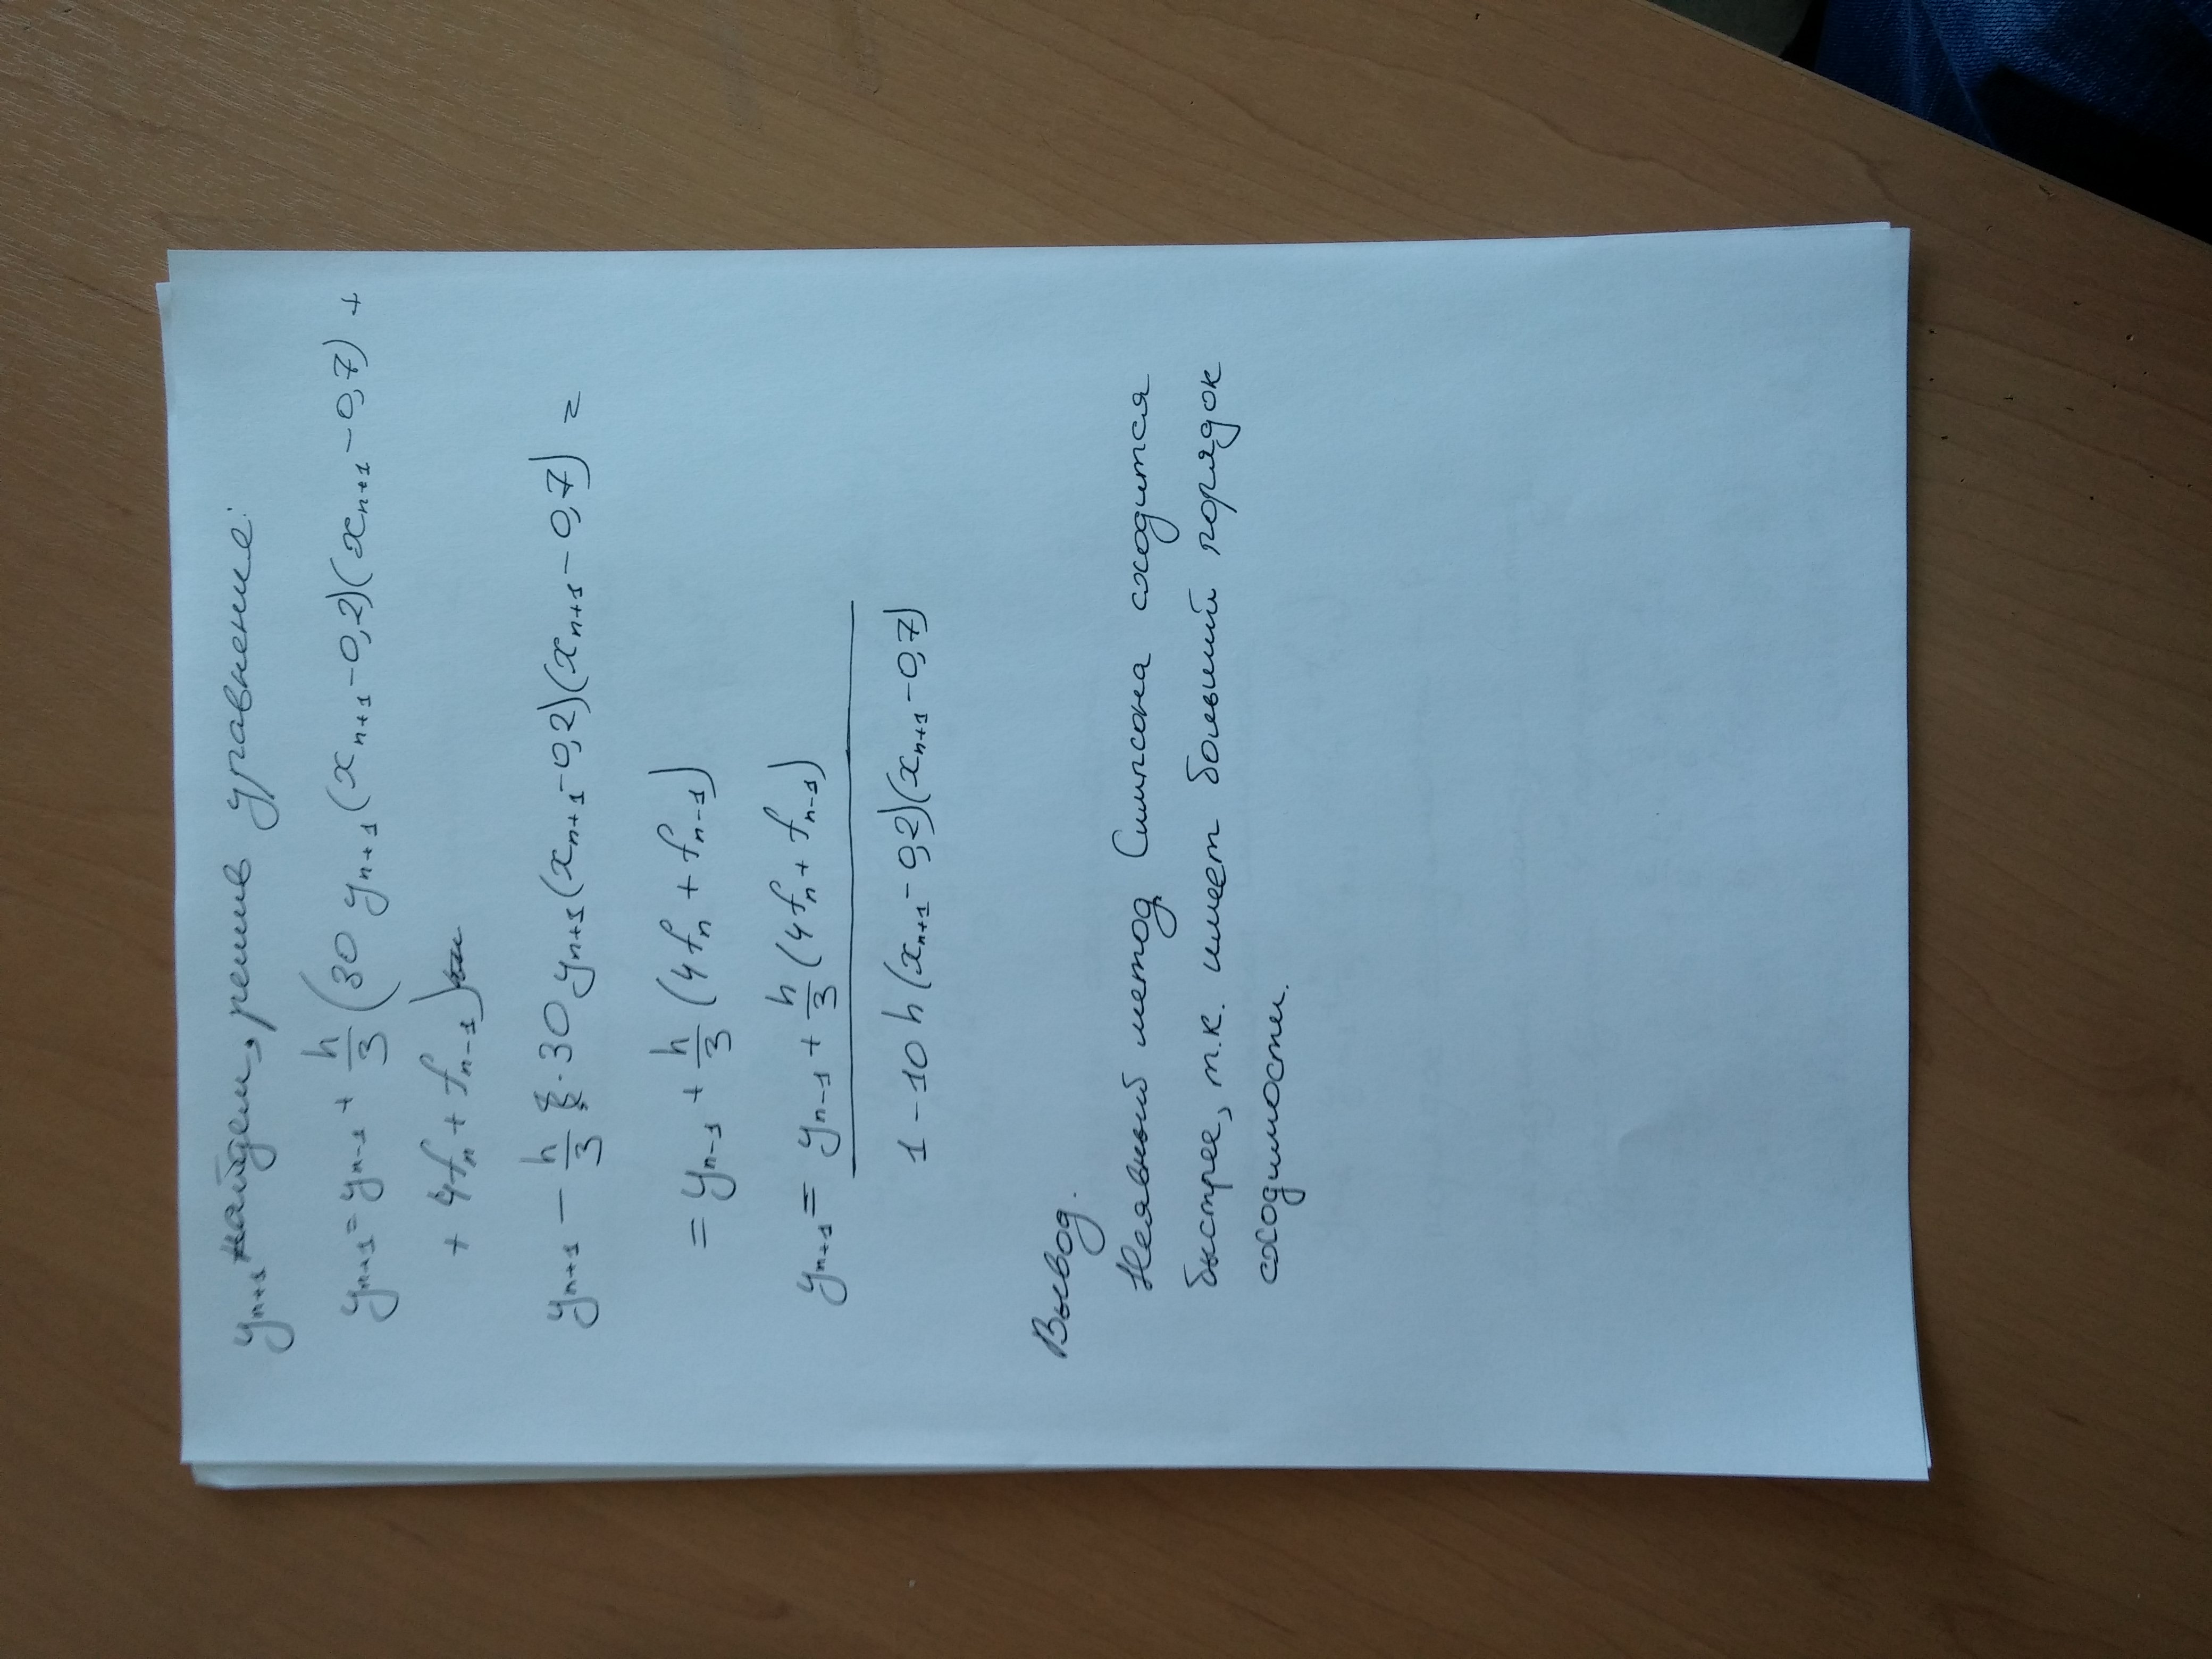 yₙ₊₁ найдем, решив уравнение:
yₙ₊₁ = yₙ₋₁ + h/3 (30 yₙ₊₁ (xₙ₊₁ − 0,2)(xₙ₊₁ − 0,7) +
+ 4fₙ + fₙ₋₁)
yₙ₊₁ − h/3 · 30 yₙ₊₁ (xₙ₊₁ − 0,2)(xₙ₊₁ − 0,7) =
= yₙ₋₁ + h/3 (4fₙ + fₙ₋₁)
yₙ₊₁ = yₙ₋₁ + h/3 (4fₙ + fₙ₋₁)
1 − 10 h (xₙ₊₁ − 0,2)(xₙ₊₁ − 0,7)
Вывод.
Неявный метод Симпсона сходится
быстрее, т.к. имеет больший порядок
сходимости.